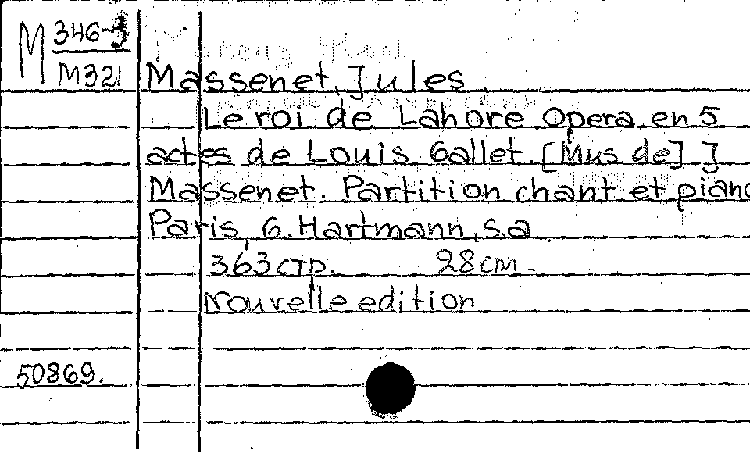 M 346-3
M321
Massenet, Jules.
Le roi de Lahore Opera en 5
actes de Louis Gallet. [Mus de] J
Massenet. Partition chant et piano
Paris, G. Hartmann, s.a
363 стр. 28 cm.
Nouvelle edition
50869.